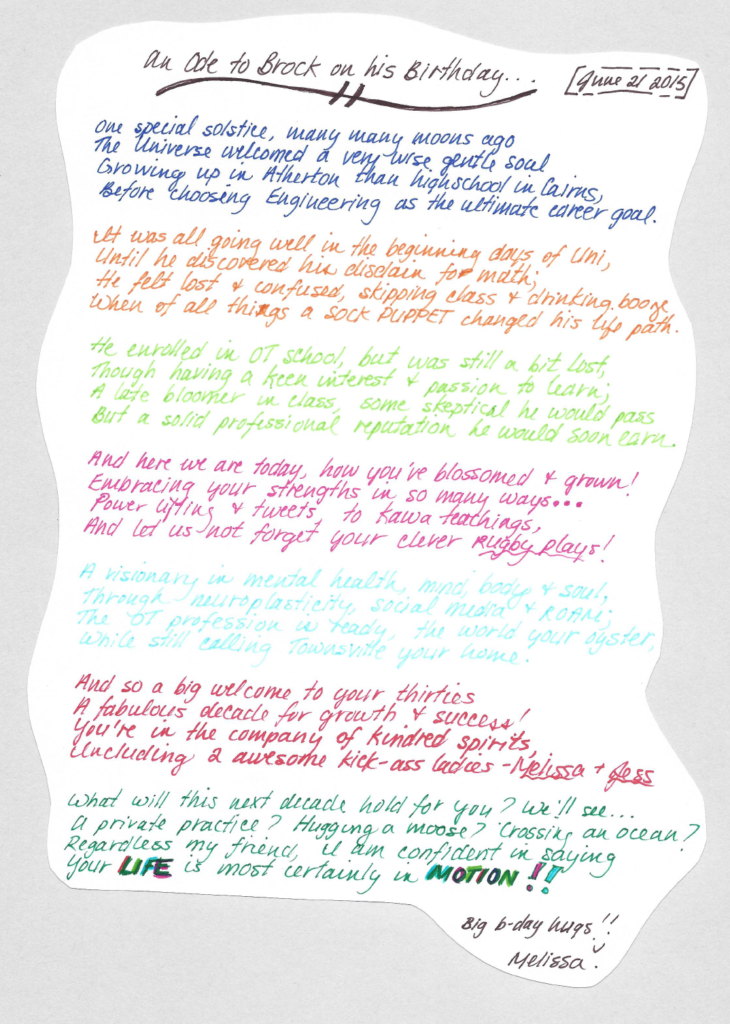 An Ode to Brock on his Birthday...
[June 21 2015]
One special solstice, many many moons ago
The Universe welcomed a very wise gentle soul
Growing up in Atherton than highschool in Cairns,
Before choosing Engineering as the ultimate career goal.
It was all going well in the beginning days of Uni,
Until he discovered his disdain for math;
He felt lost & confused, skipping class & drinking booze
When of all things a SOCK PUPPET changed his life path.
He enrolled in OT school, but was still a bit lost,
Though having a keen interest & passion to learn;
A late bloomer in class, some skeptical he would pass
But a solid professional reputation he would soon earn.
And here we are today, how you've blossomed & grown!
Embracing your strengths in so many ways...
Power lifting & tweets, to Kawa teachings,
And let us not forget your clever Rugby Plays!
A visionary in mental health, mind, body & soul,
Through neuroplasticity, social media & ROAM;
The OT profession is ready, the world your oyster,
While still calling Townsville your home.
And so a big welcome to your thirties
A fabulous decade for growth & success!
You're in the company of kindred spirits,
Including 2 awesome kick-ass ladies - Melissa + Jess
What will this next decade hold for you? We'll see...
A private practice? Hugging a moose? Crossing an ocean?
Regardless my friend, I am confident in saying
Your LIFE is most certainly in MOTION!!
Big b-day hugs!!
Melissa